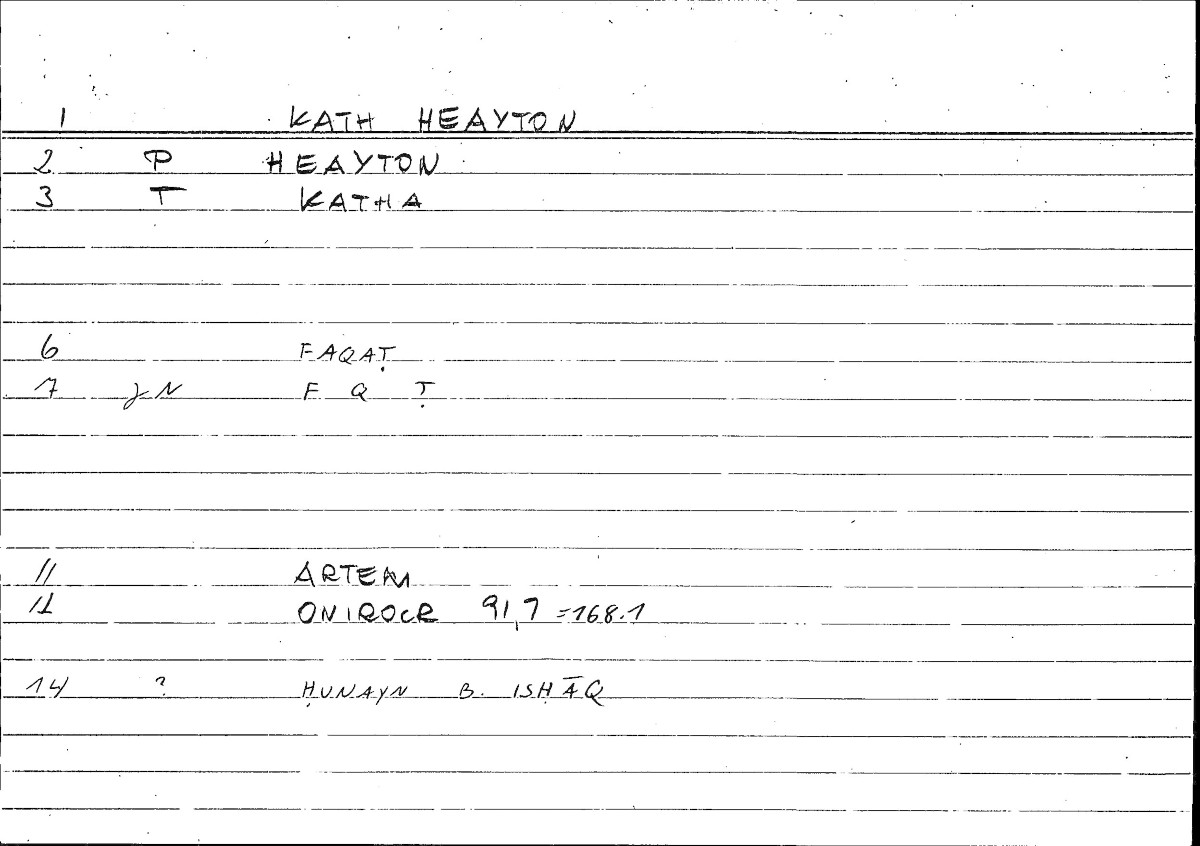 1 KATH HEAYTON
2 P HEAYTON
3 T KATHA
6 FAQAṬ
7 JN F Q Ṭ
11 ARTEM
12 ONIROCR 91,7 =168.1
14 ? ḤUNAYN B. ISḤĀQ